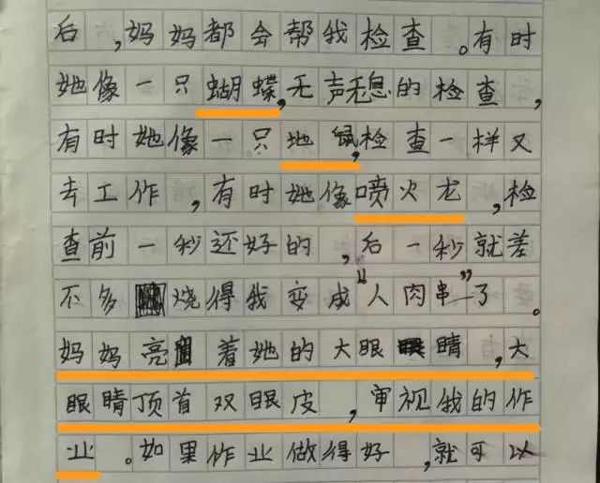 后,妈妈都会帮我检查。有时
她像一只蝴蝶,无声无息的检查,
有时她像一只地鼠,检查一样又
去工作,有时她像喷火龙,检
查前一秒还好的,后一秒就差
不多烧得我变成“人肉串”了。
妈妈亮着她的大眼睛,大
眼睛顶首双眼皮,审视我的作
业。如果作业做得好,就可以